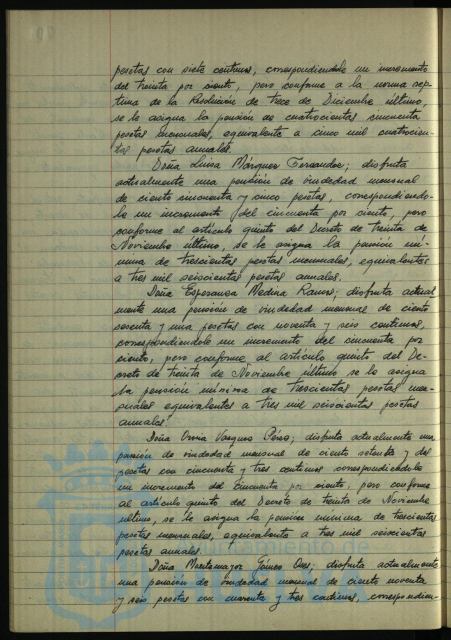 pesetas con siete centimos, correspondiendole un incremento
del treinta por ciento, pero conforme a la norma sep-
tima de la Resolución de trece de Diciembre último,
se le asigna la pensión de cuatrocientas cincuenta
pesetas mensuales, equivalente a cinco mil cuatrocien-
tas pesetas anuales.
Doña Luisa Márquez Fernandez; disfruta
actualmente una pensión de viudedad mensual
de ciento cincuenta y cinco pesetas, correspondiendo-
le un incremento del cincuenta por ciento, pero
conforme al artículo quinto del Decreto de treinta de
Noviembre último, se le asigna la pensión mí-
nima de trescientas pesetas mensuales, equivalentes
a tres mil seiscientas pesetas anuales.
Doña Esperanza Medina Ramos; disfruta actual
mente una pensión de viudedad mensual de ciento
sesenta y una pesetas con noventa y seis centimos,
correspondiendole un incremento del cincuenta por
ciento, pero conforme al artículo quinto del De-
creto de treinta de Noviembre último se le asigna
la pensión mínima de trescientas pesetas men-
suales equivalentes a tres mil seiscientas pesetas
anuales.
Doña Vazquez Pérez; disfruta actualmente una
pensión de viudedad mensual de ciento setenta y dos
pesetas con cincuenta y tres centimos correspondiendole
un incremento del cincuenta por ciento, pero conforme
al artículo quinto del Decreto de treinta de Noviembre
último, se le asigna la pensión mínima de trescientas
pesetas mensuales, equivalente a tres mil seiscientas
pesetas anuales.
Doña Montemayor Gómez; disfruta actualmente
una pensión de viudedad mensual de ciento noventa
y seis pesetas con cuarenta y tres centimos, correspondien-